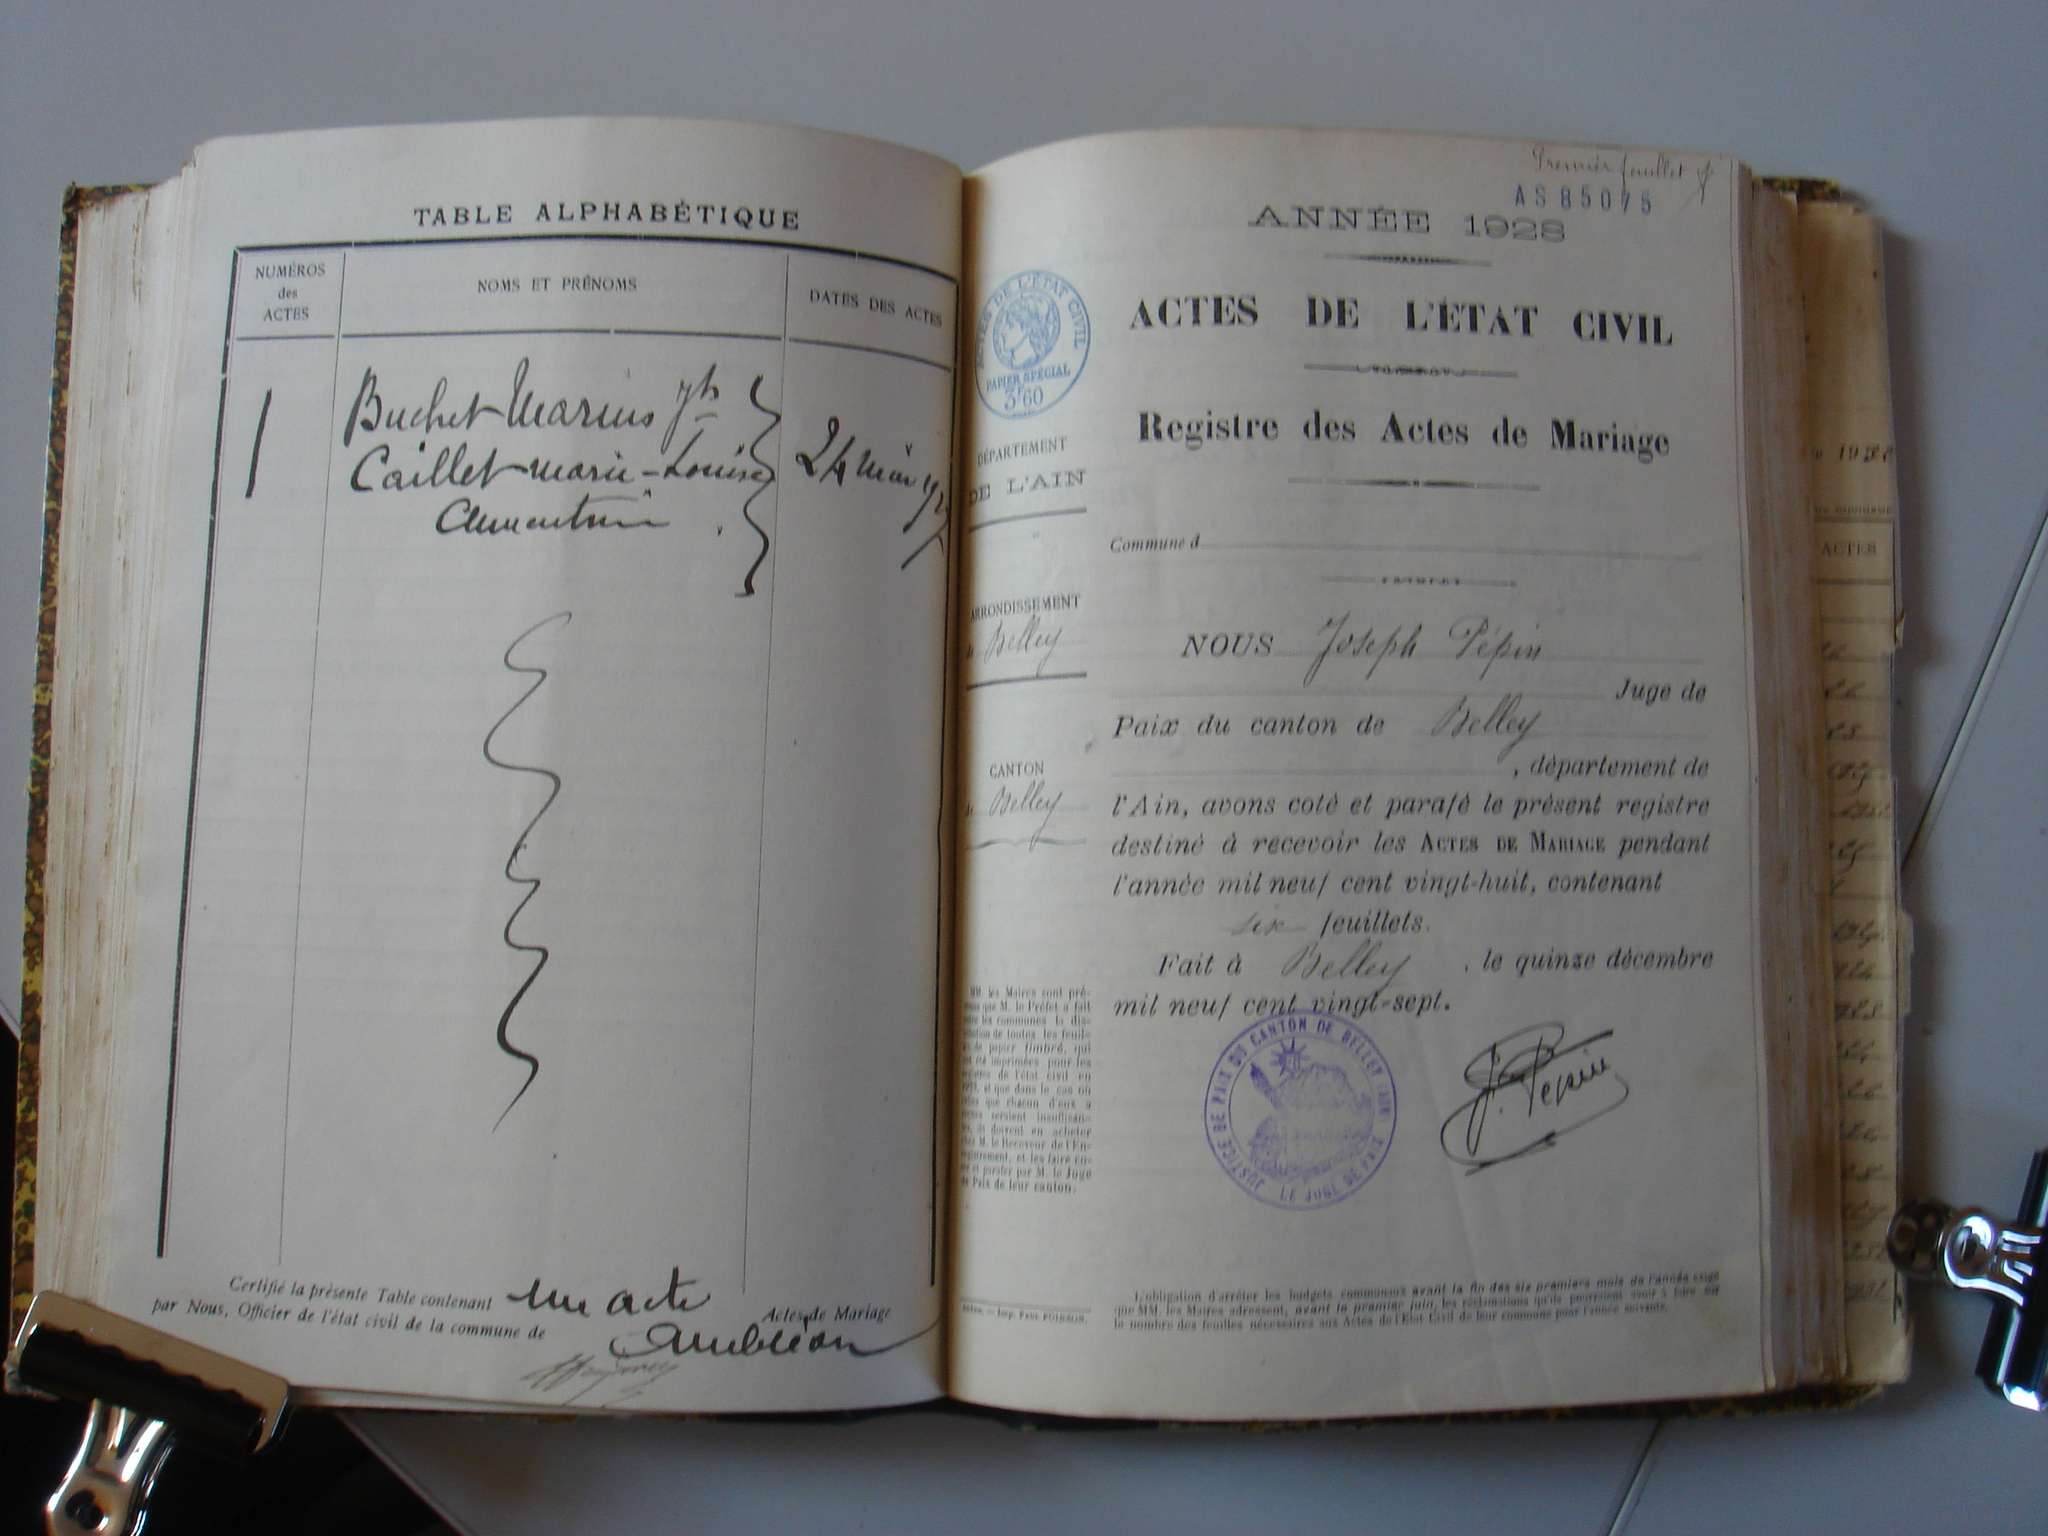 TABLE ALPHABÉTIQUE
NUMÉROS
des
ACTES
NOMS ET PRÉNOMS
DATES DES ACTES
1
Buchet Marius Jh
Caillet Marie-Louise
24 Mai
Certifié la présente Table contenant un acte Actes de Mariage
par Nous, Officier de l'état civil de la commune de Ambléon
Premier feuillet
AS 85075
ANNÉE 1928
ACTES DE L'ÉTAT CIVIL
PAPIER SPÉCIAL
3F60
ACTES DE L'ÉTAT CIVIL
Registre des Actes de Mariage
DÉPARTEMENT
DE L'AIN
Commune d
ARRONDISSEMENT
Belley
NOUS Joseph Pépin
Juge de
Paix du canton de Belley
, département de
CANTON
Belley
l'Ain, avons coté et parafé le présent registre
destiné à recevoir les ACTES DE MARIAGE pendant
l'année mil neuf cent vingt-huit, contenant
six feuillets.
Fait à Belley, le quinze décembre
mil neuf cent vingt-sept.
MM. les Maires sont
que M. le Préfet a fait
les communes la
de toutes les
de papier timbré, qui
été imprimées pour les
de l'état civil en
et que dans le cas où
que chacun d'eux a
seraient
ils doivent en acheter
M. le Receveur de
et les faire
et parafer par M. le Juge
de Paix de leur canton.
JUSTICE DE PAIX DU CANTON DE BELLEY AIN
LE JUGE DE PAIX
J. Pépin
L'obligation d'arrêter les budgets communaux avant la fin des six premiers mois de l'année exige
que MM. les Maires adressent, avant le premier juin, les réclamations qu'ils pourraient avoir à faire sur
le nombre des feuilles nécessaires aux Actes de l'État Civil de leur commune pour l'année suivante.
Imp. Paul
ACTES